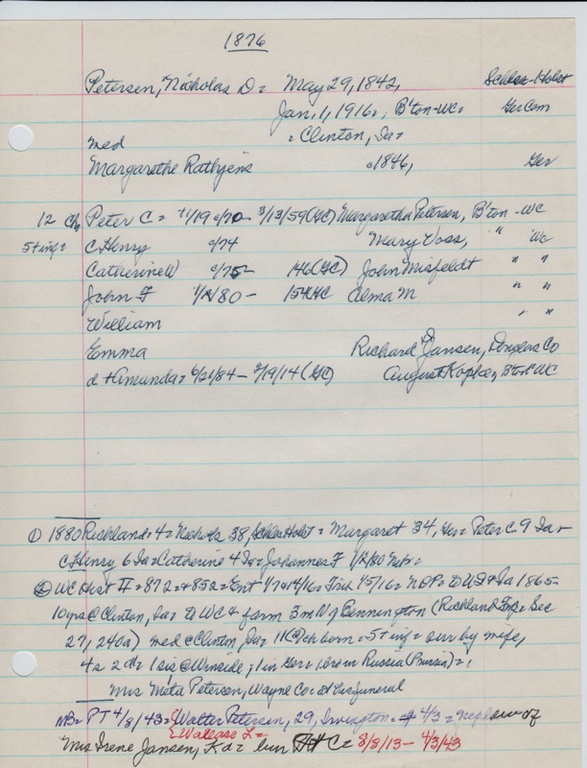 1876
Petersen, Nicholas D= May 29, 1842, Schles-Holst
Jan. 1, 1916=, B'ton-WC= GerCem
= Clinton, Ia=
med
Margarethe Rathjens c1846, Ger
12 Ch Peter C= 11/19 c/70- 3/13/59(GC) Margaretha Petersen, B'ton-WC
5 + inf= C Henry c/74 Mary Voss, " WC
Catherine W c/75- 146(GC) John Misfeldt " "
John F 1/12/80- 154GC Alma M " "
William " "
Emma Richard Jansen, Douglas Co
d + Amanda= 6/21/84- 2/19/14(GC) August Kopke, B'ton WC
① 1880 Richland= 4= Nichols 38, Schles Holst= Margaret 34, Ger= Peter C 9 Ia=
C Henry 6 Ia= Catherine 4 Ia= Johannes F 1/2/80 Nebr=
② WC Hist II= 872= & 852= Ent 1/7 & 14/16= Trib 1/5/16= NDP= to US & Ia 1865-
10 yrs @ Clinton, Ia= to WC & farm 3 m N of Bennington (Richland Twp= Sec
27, 240a) med @ Clinton, Ia= 11 ch born= 5 + inf= surv by wife,
4 s 2 d= 1 sis @ Winside; 1 in Ger= 1 bro in Russia (Prussia)=;
Mrs Meta Petersen, Wayne Co= at his funeral
NB= PT 4/8/43= Walter Petersen, 29, Irvington= 4/3= neph surv of
Wallace L=
Mrs Irene Jansen, K d= bur C= 8/8/13- 4/3/43